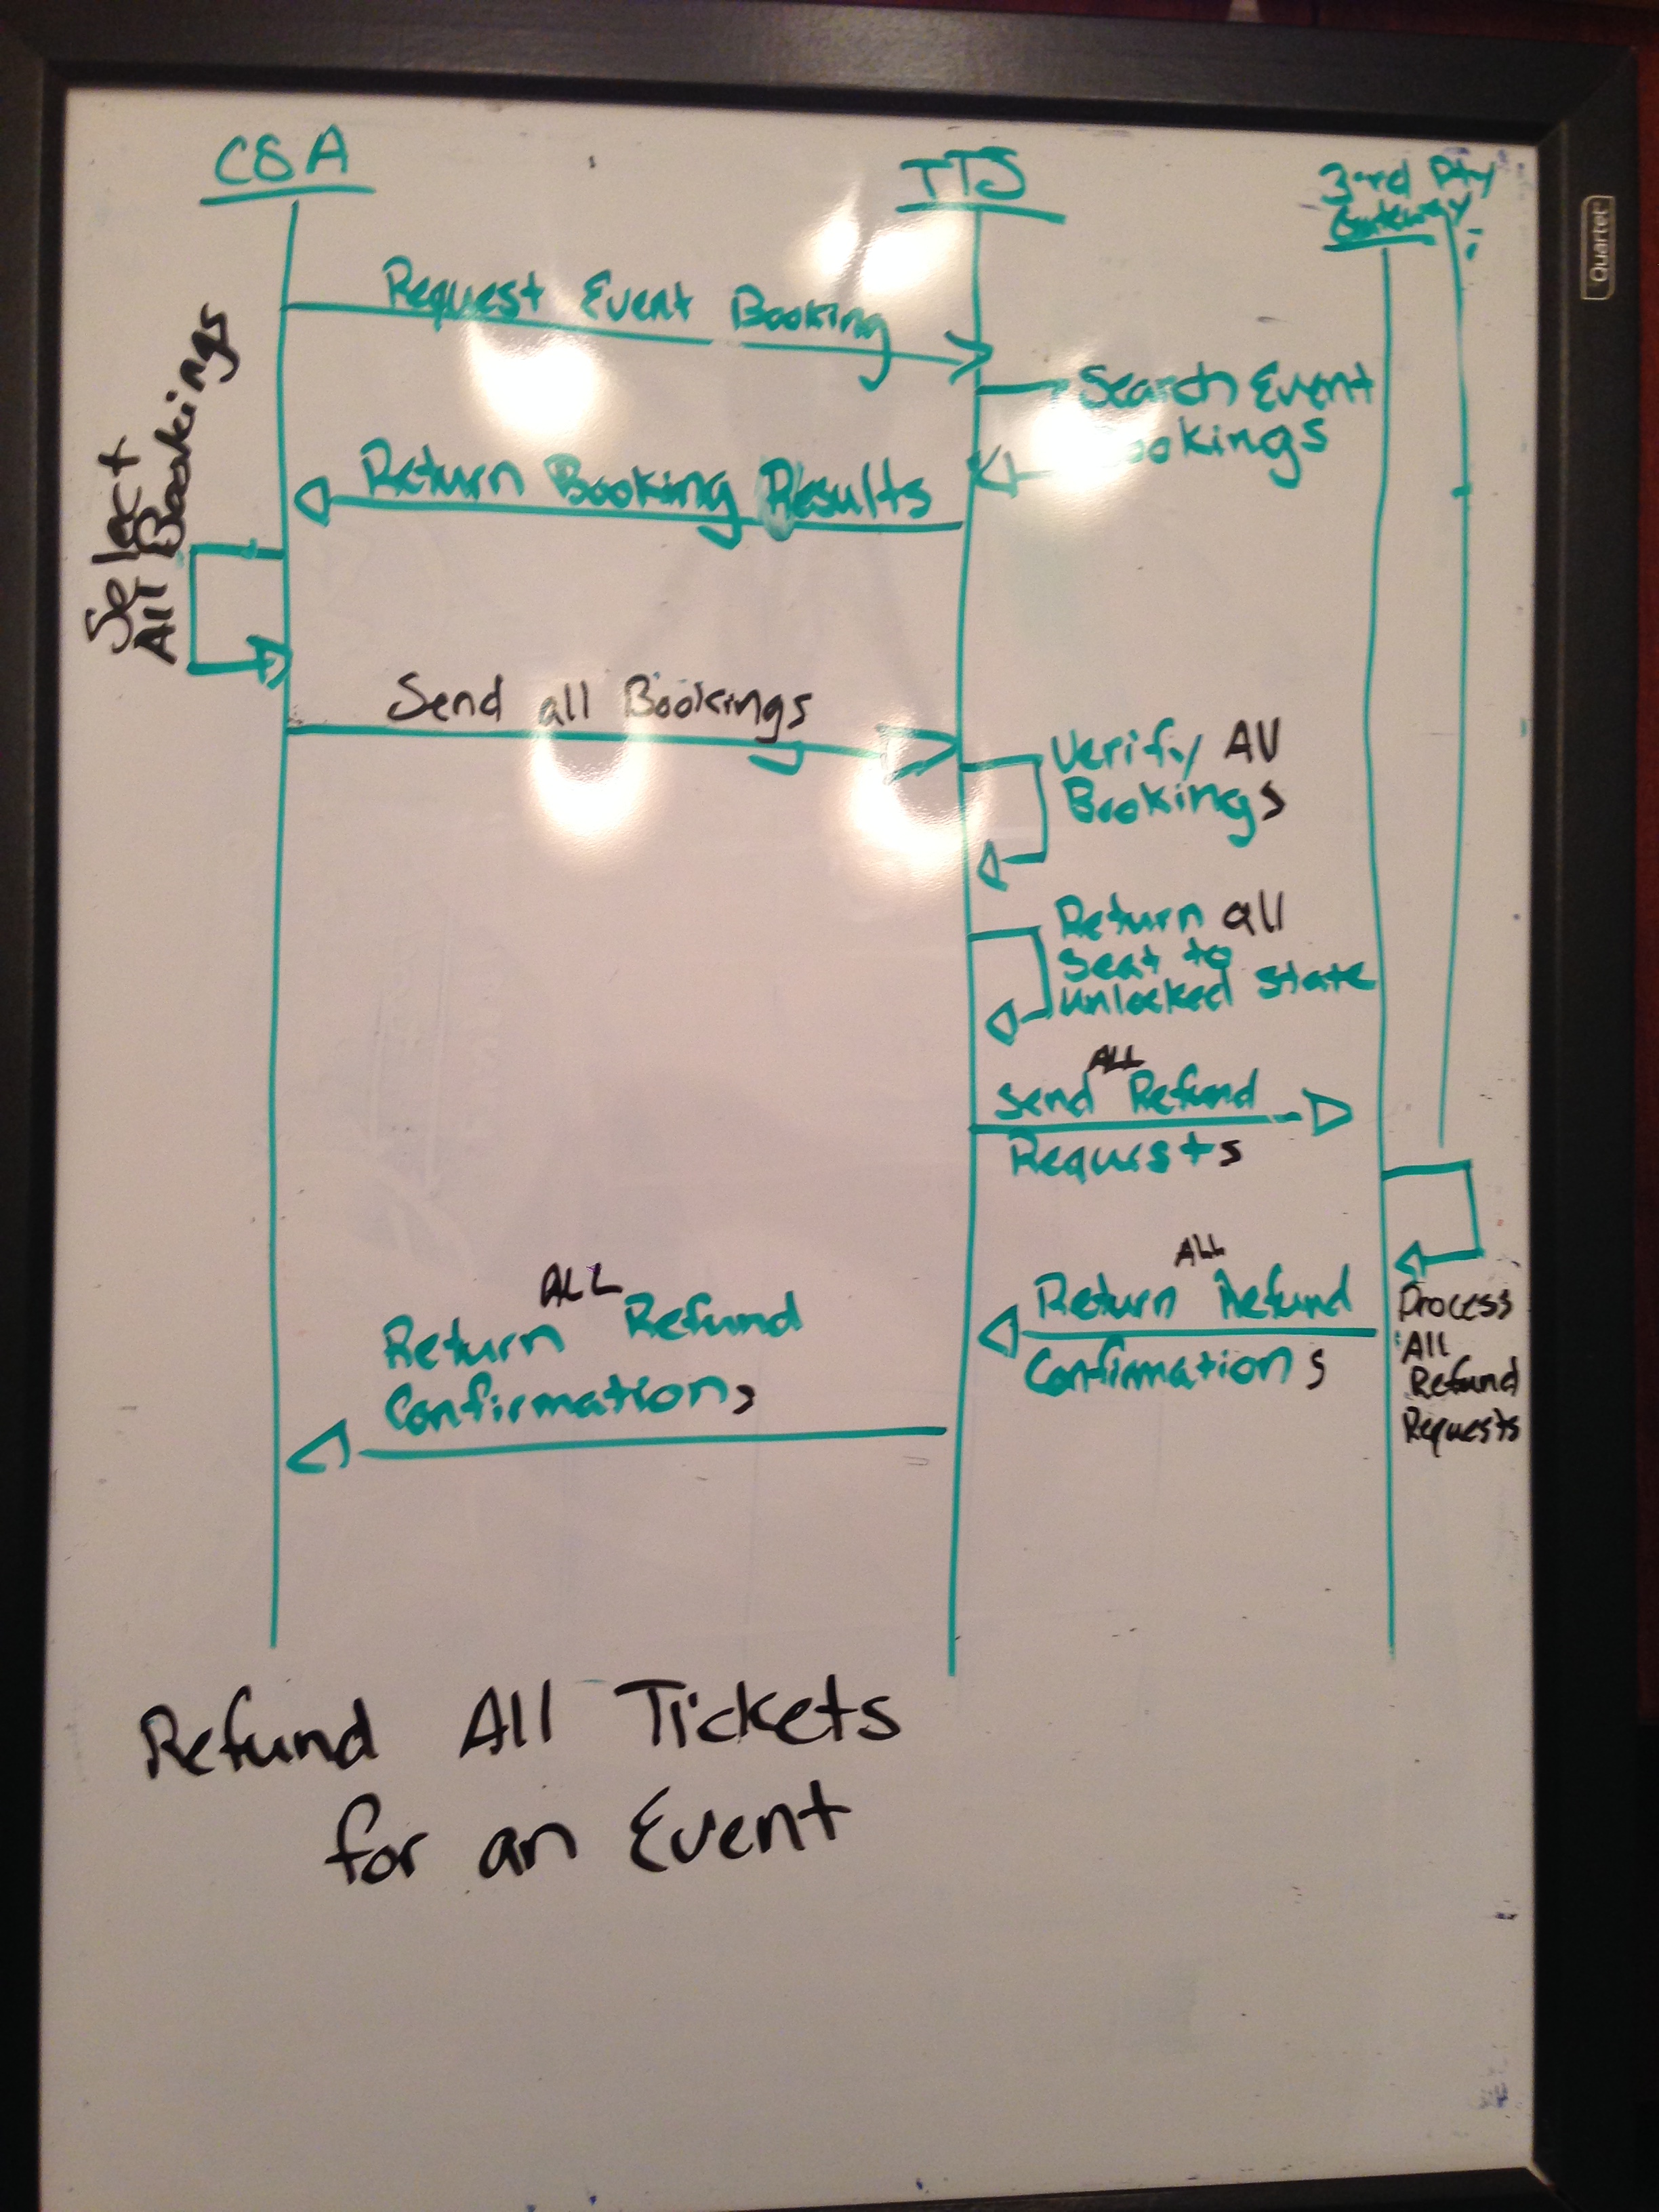 CSA
TTS
3rd Pty
Gateway
Quartet
Request Event Booking
Search Event
Bookings
Return Booking Results
Select
All Bookings
Send all Bookings
Verify All
Bookings
Return all
Seat to
unlocked state
ALL
Send Refund
Requests
ALL
Return Refund
Confirmations
Process
All
Refund
Requests
ALL
Return Refund
Confirmations
Refund All Tickets
for an Event